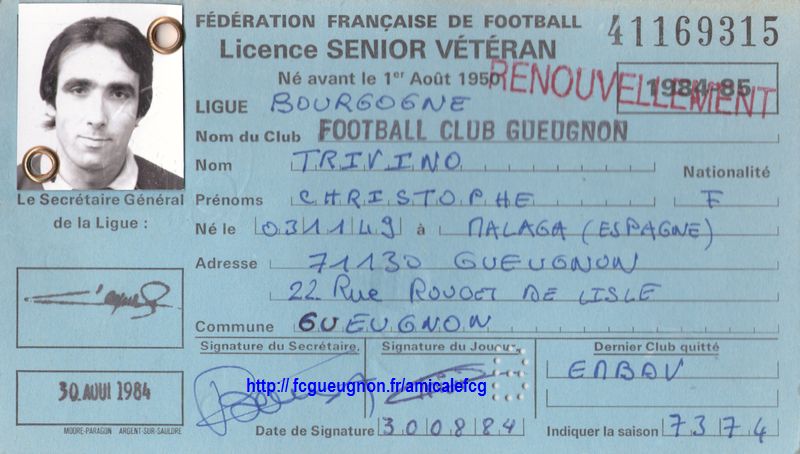 FÉDÉRATION FRANÇAISE DE FOOTBALL 41169315
Licence SENIOR VÉTÉRAN
Né avant le 1er Août 1950 RENOUVELLEMENT 1984-85
LIGUE BOURGOGNE
Nom du Club FOOTBALL CLUB GUEUGNON
Nom TRIVINO Nationalité
Prénoms CHRISTOPHE F
Le Secrétaire Général
de la Ligue :
Né le 031149 à MALAGA (ESPAGNE)
Adresse 71130 GUEUGNON
22 Rue ROUGET DE LISLE
Commune GUEUGNON
Signature du Secrétaire, Signature du Joueur, Dernier Club quitté
30 AOUT 1984
http://fcgueugnon.fr/amicalefcg
Date de Signature 300884 Indiquer la saison 7374
MOORE-PARAGON ARGENT-SUR-SAULDRE